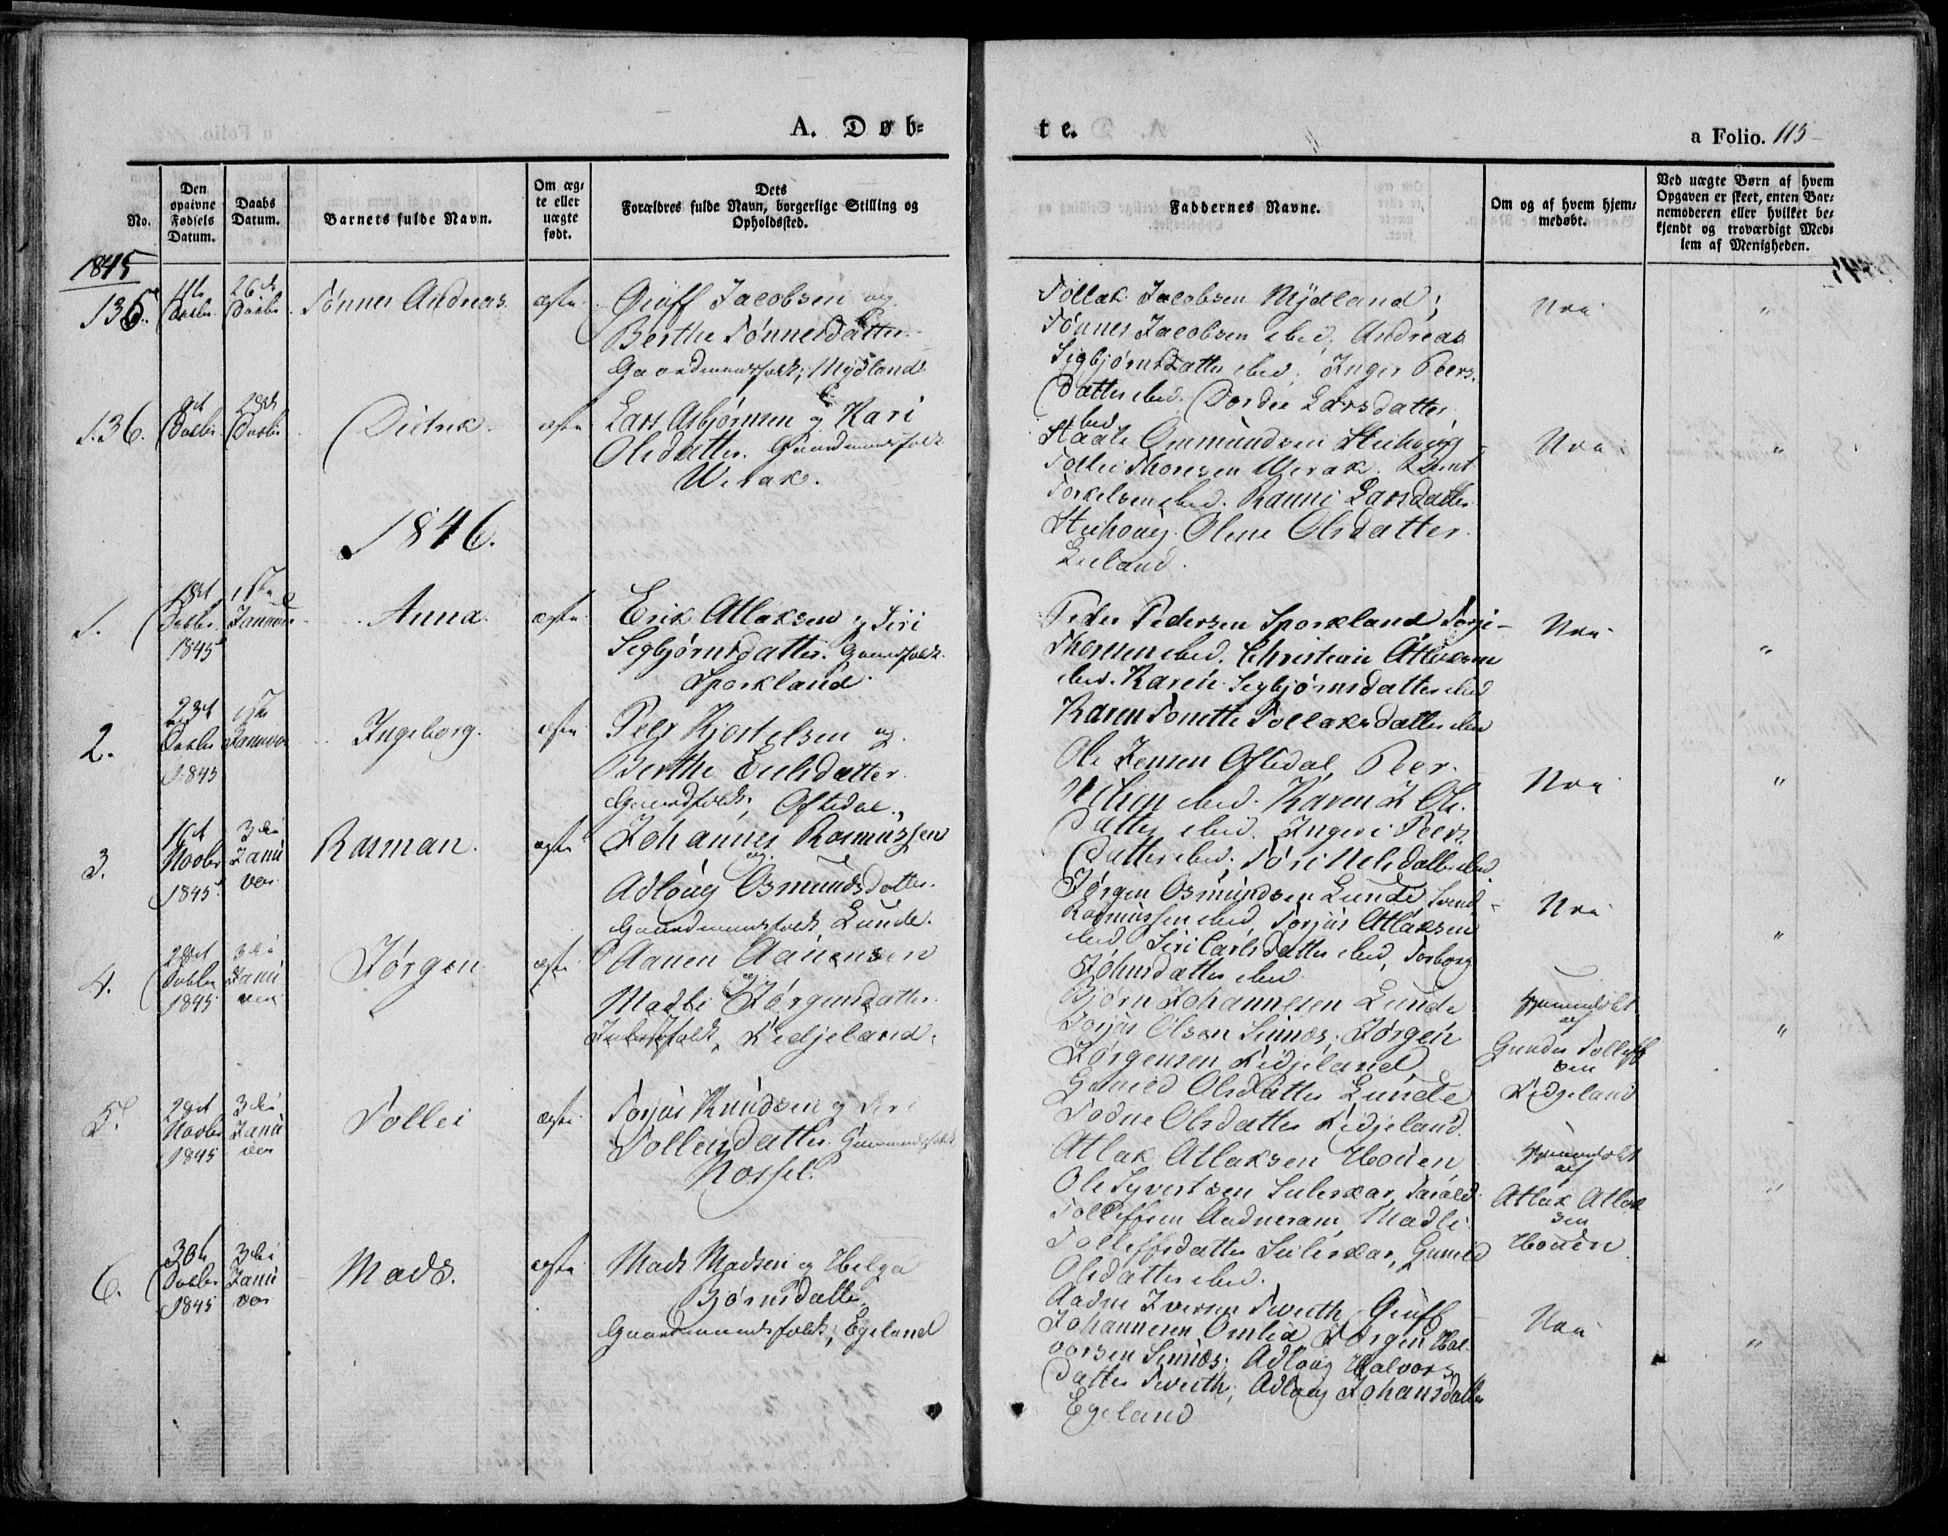 A. Døb-
te.
a Folio. 115
No.
Den
opgivne
Fødsels
Datum.
Daabs
Datum.
Barnets fulde Navn.
Om æg-
te eller
uægte
født.
Dets
Forældres fulde Navn, borgerlige Stilling og
Opholdssted.
Faddernes Navne.
Om og af hvem hjem-
medøbt.
Ved uægte Børn af hvem
Opgaven er skeet, enten Bar-
nemoderen eller hvilket be-
kjendt og troværdigt Med-
lem af Menigheden.
1845
135.
26de
Tønnes Andreas
ægte
Giuff Jacobsen og
Berthe Tønnesdatter
Gaardmandsfolk, Mydland
Tollak Jacobsen Mydland;
Tønnes Jacobsen ibid, Andreas
Sigbjørnsdatter ibid, Inger Peers-
datter ibid. Dordie Larsdatter
ibid
Nei
"
136.
Didrik
ægte
Lars Asbjørnsen og Kari
Olsdatter. Gaardmandsfolk
Werak.
Staale Ommundsen Stuhoug
Tollei Thoresen Werak.
Torkelsen ibid. Ranni Larsdatter
Stuhoug. Olene Olsdatter
Lieland.
Nei
"
1846.
1.
18de
Decbr
1845
1ste
Januar
Anna
ægte
Erik Atlaksen og Siri
Segbjørnsdatter. Gaardfolk
Sporkland
Peder Pedersen Sporkland Terje
Thoresen ibid. Christian Atlaksen
ibid. Karen Segbjørnsdatter ibid
Karen Tonette Tollaksdatter ibid
Nei
"
2.
23de
Decbr
1845
1ste
Januar
Ingeborg.
ægte
Peer Kjertelsen og
Berthe Eielsdatter
Gaardfolk, Oftedal.
Ole Jensen Oftedal, Peer
Nilsen ibid. Karen J. Ols-
datter ibid. Ingeri Peers-
datter ibid. Tøri Nelsdatter ibid
Nei
"
3.
Novbr
1845
3die
Janu
var
Rasman.
ægte
Johannes Rasmussen
og
Adloug Osmundsdatter.
Gaardmandsfolk Lunde.
Jørgen Osmundsen Lunde, Svend
Rasmussen ibid, Torjus Atlaksen
ibid Siri Carlsdatter ibid, Torborg
Johnsdatter ibid
Nei
"
4.
Decbr
1845
3die
Janu
var
Jørgen
ægte
Aanen Aanensen
og
Madli Jørgensdatter.
Inderstfolk, Lidjeland.
Bjørn Johannesen Lunde
Torjus Olsen Sinnes, Jørgen
Jørgensen Lidjeland
Gunild Olsdatter Lunde
Todne Olsdatter Lidjeland.
hjemmedøbt
af
Gunder Tollefs
sen
Lidjeland
"
5.
29de
Novbr
1845
3die
Janu
var
Tollei
ægte
Torjus Knudsen og Siri
Tolleivsdatter. Gaardmandsfolk
Norssel.
Atlak Atlaksen Houen,
Ole Syvertsen Suleskar, Tarald
Tolleffsen Aadneram, Madli
Tolleffsdatter Suleskar, Gunild
Olsdatter ibid.
hjemmedøbt
af
Atlak Atlak
sen
Houen
"
6.
Decbr
1845
3die
Janu
var
Mads.
ægte
Mads Madsen og Helga
Bjørnsdatter
Gaardmandsfolk, Egeland
Aadne Iversen Tveeth, Giuff
Johannesen Omlid, Jørgen Hal-
vorsen Sinnes, Adloug Halvors-
datter Tveeth, Adloug Johansdatter
Egeland
Nei
"